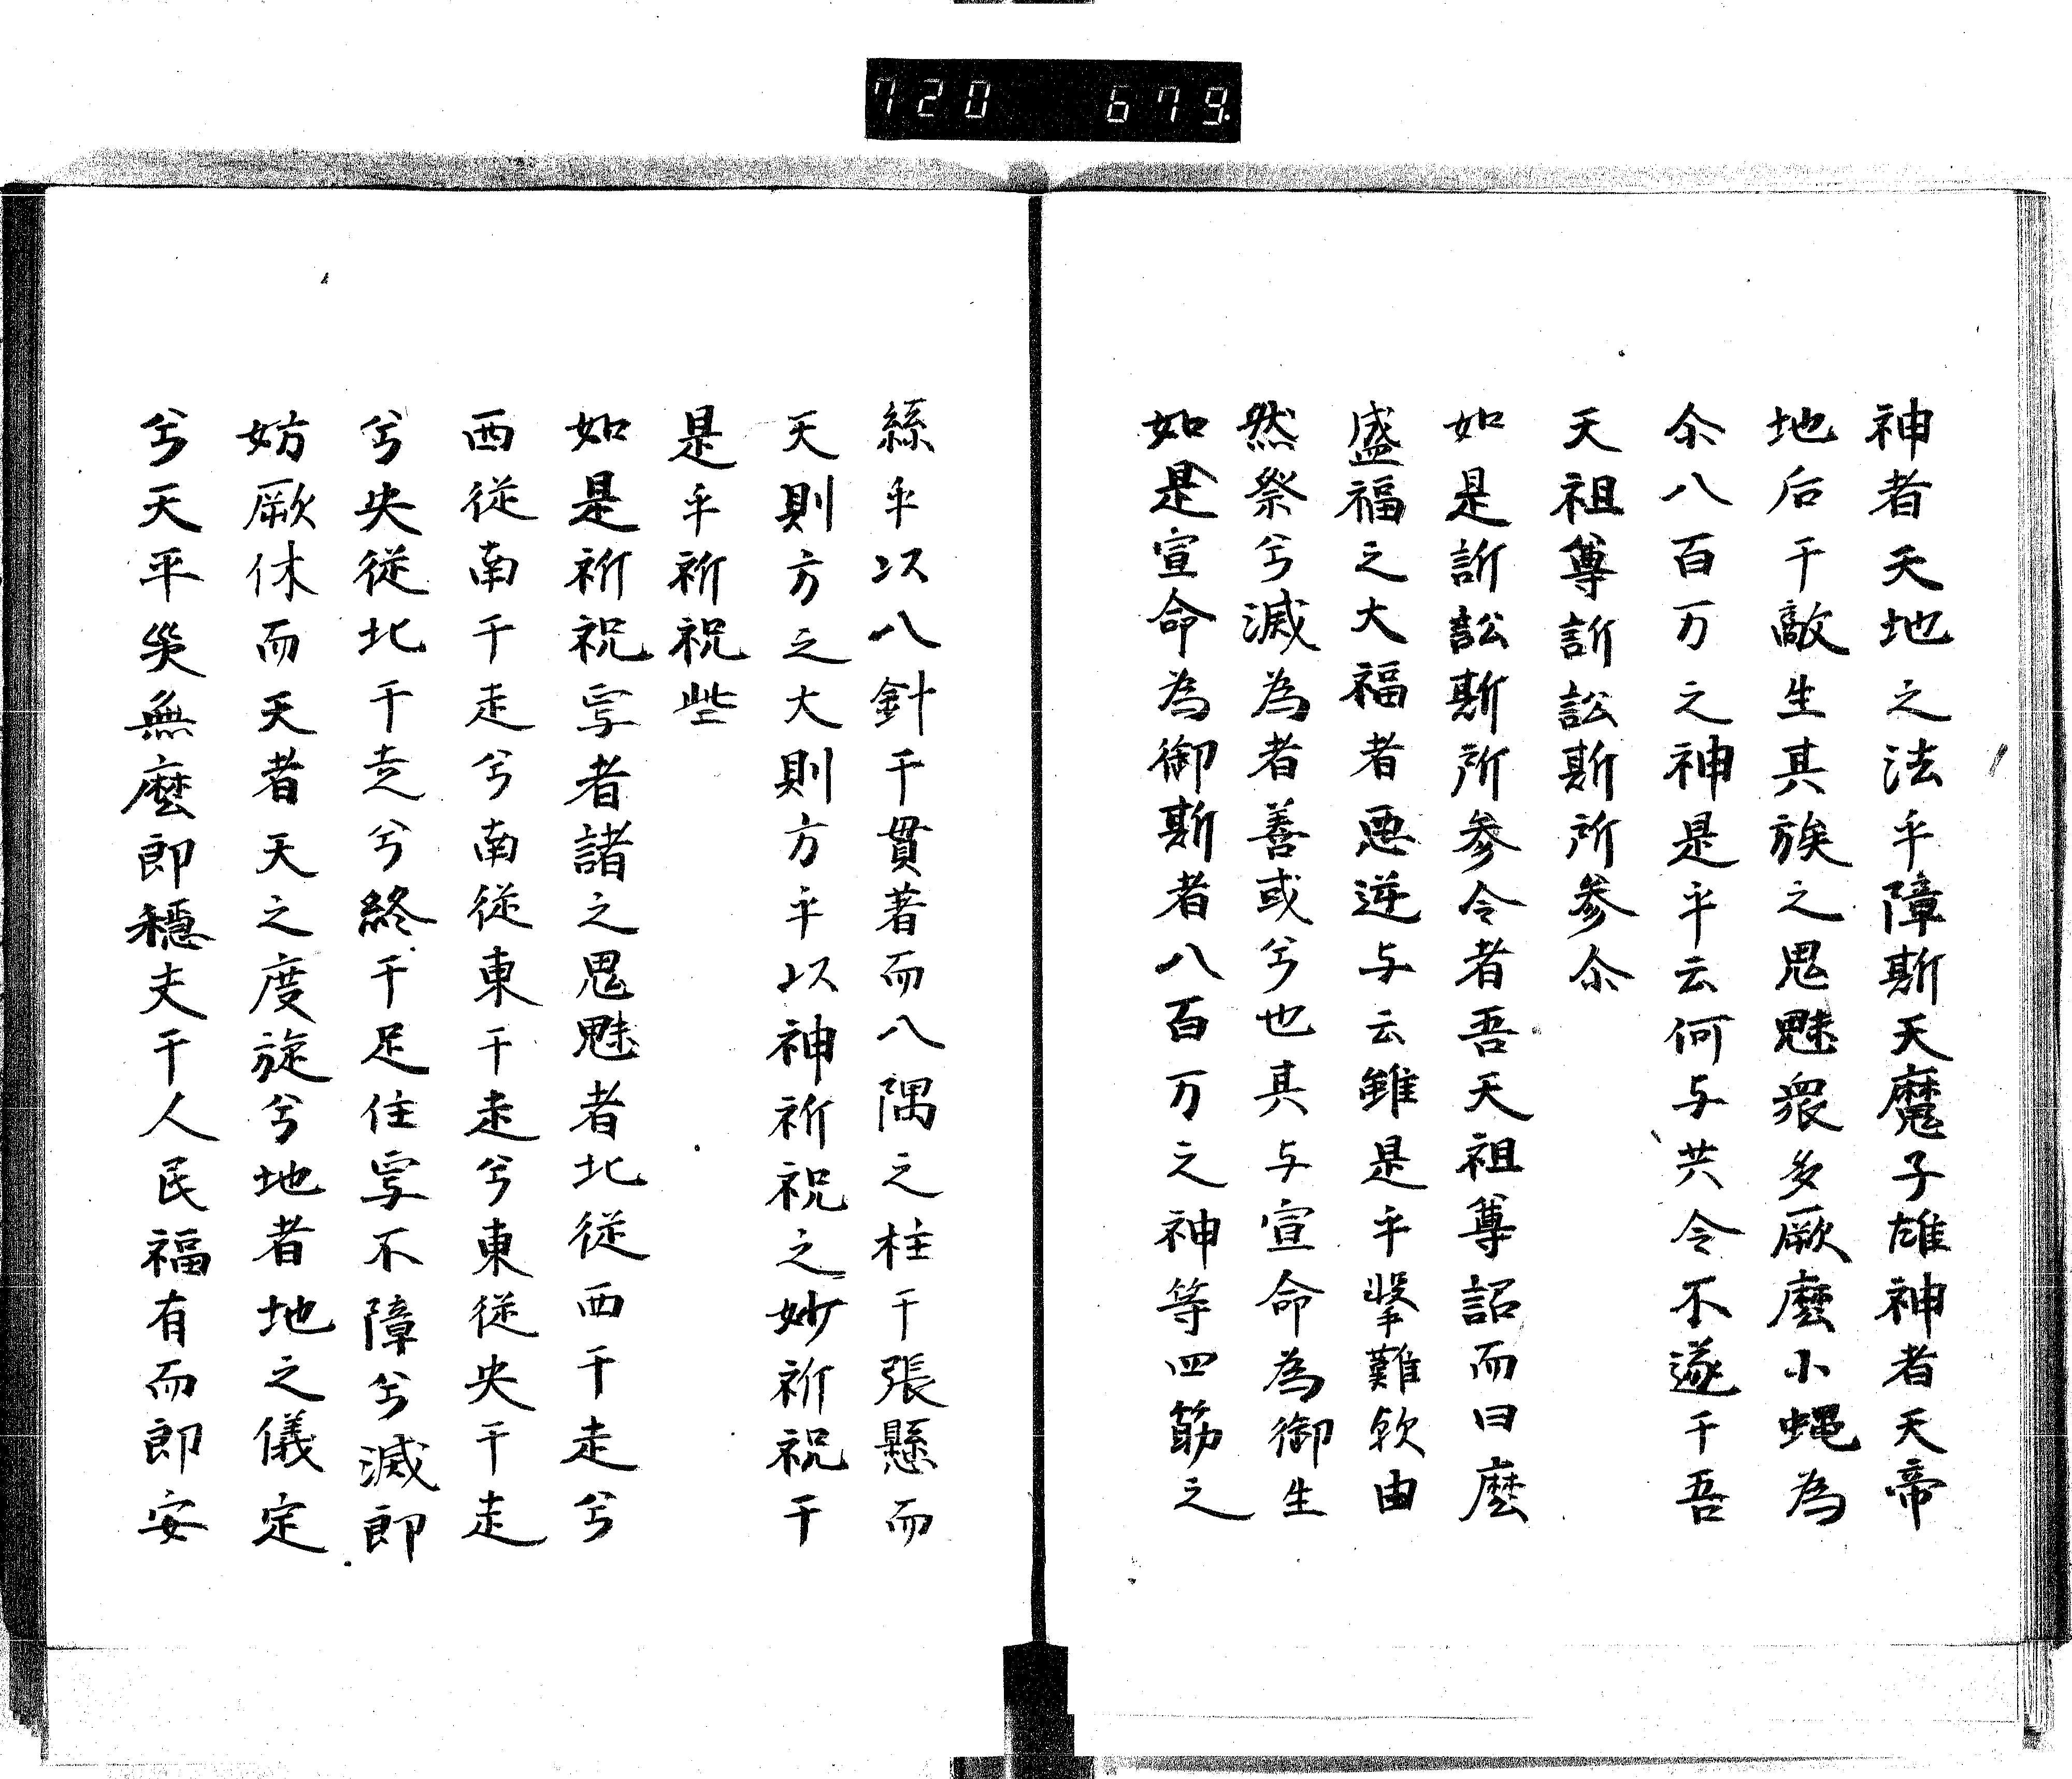 720 679.
神者天地之法乎障斯天魔子雄神者天帝
地后干敵生其族之鬼魅衆多厥麼小蝿為
尒八百万之神是乎云何与共令不遂干吾
天祖尊訴訟斯所参尒
如是訴訟斯所参令者吾天祖尊詔而曰麼
盛福之大福者悪逆与云雖是乎撃難欤由
然祭兮滅為者善或兮也其与宣命為御生
如是宣命為御斯者八百万之神等四筋之
絲乎以八針干貫著而八隅之柱干張懸而
天則方之大則方乎以神祈祝之妙祈祝干
是乎祈祝些
如是祈祝寧者諸之鬼魅者北従西干走兮
西従南干走兮南従東干走兮東従央干走
兮央従北干走兮終干足住寧不障兮滅即
妨厥休而天者天之度旋兮地者地之儀定
兮天平災無麼即穏夫干人民福有而即安